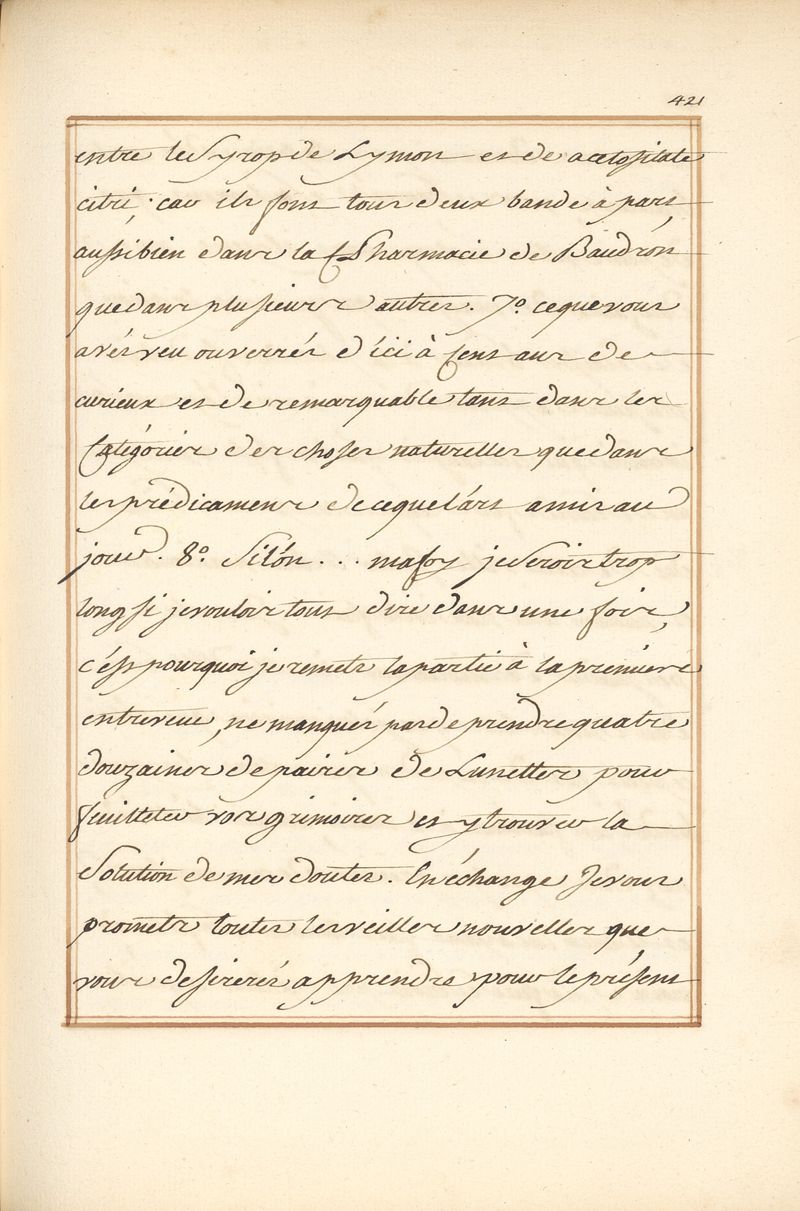 421
entre le Syrop de Lymon et de acetositate
citri; car ils font tous deux bande à part,
aussi bien dans la Pharmacie de Baudrón
que dans plusieurs autres. 7.º ce que vous
avés veu ou verrés d'ici à Cent ans de
curieux et de remarquable tant dans les
Catégories des choses naturelles que dans
les prédicamens de ce que l'árt a mis au
jour. 8.º Si l'ón... ma foy je Serois trop
long si je voulois tout dire dans une fois,
c'ést pourquoi je remets la partie à la premiere
entreveue, ne manqués pas de prendre quatre
douzaines de paires de Lunettes pour
feuilleter vos grimoires et y trouver la
Solution de mes doutes. En échange Je vous
promets toutes les vieilles nouvelles que
vous desirerés apprendre pour le présent